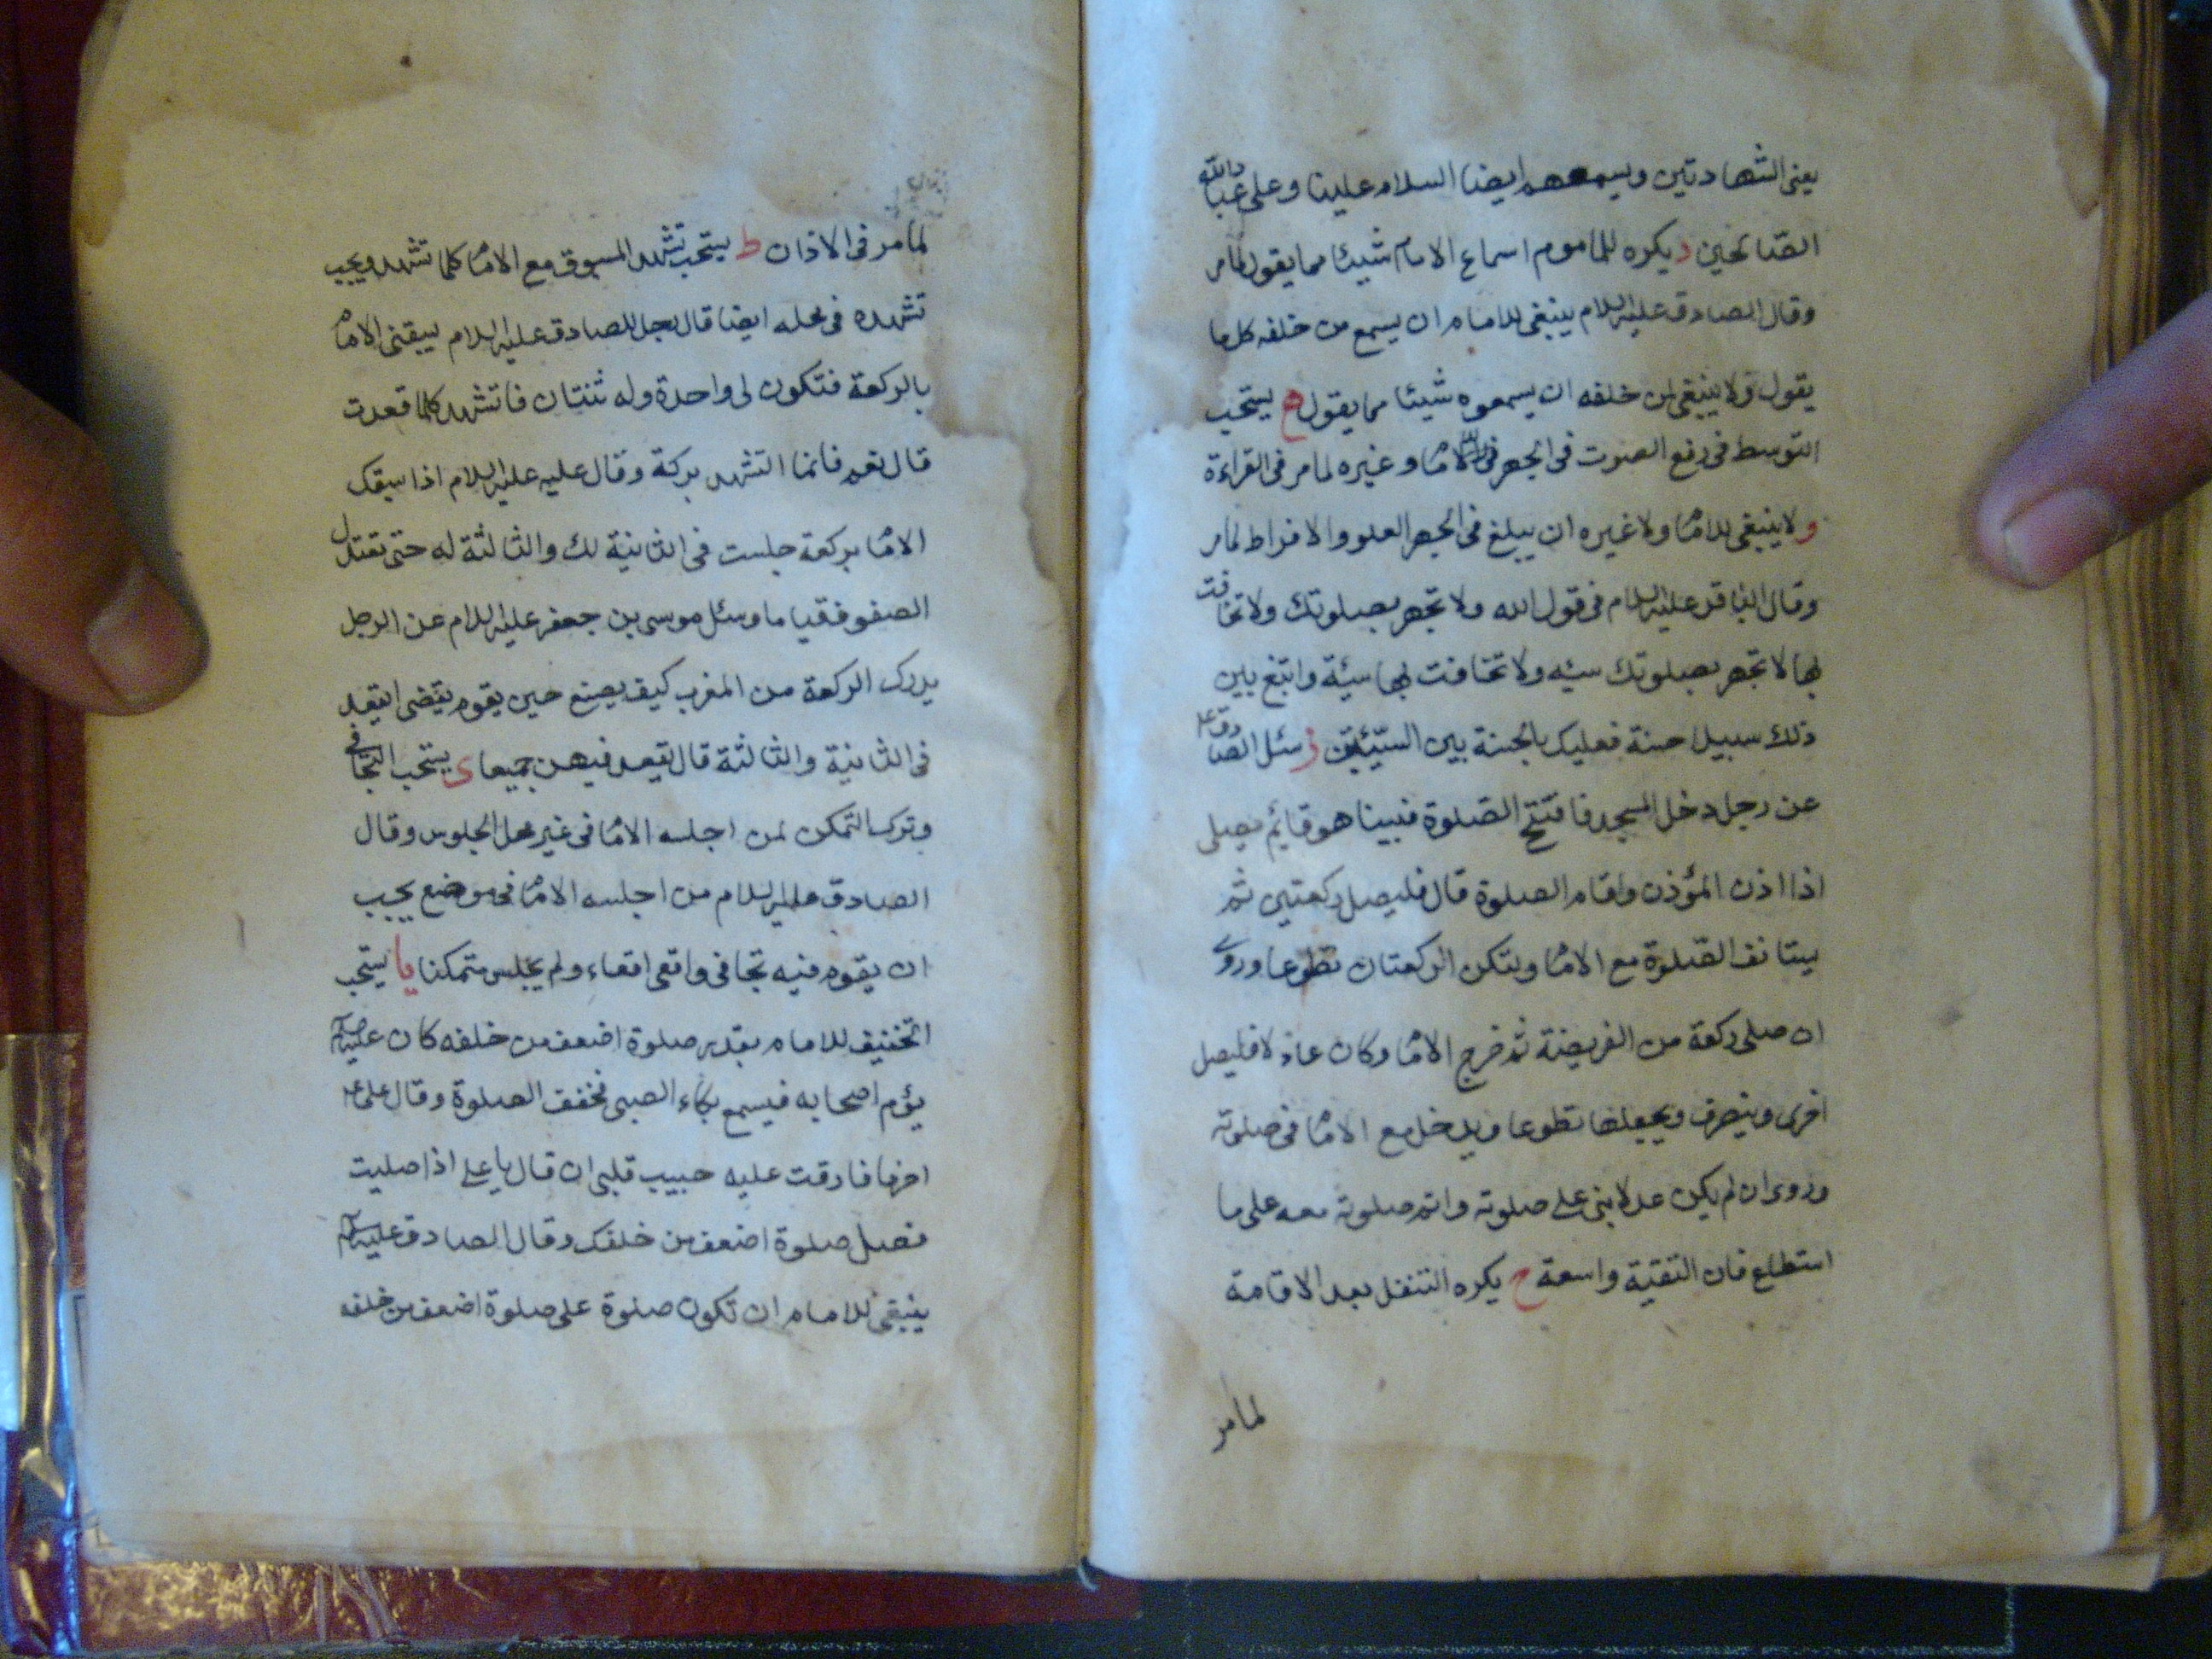 يعنى الشهادتين ويسمعهم ايضا السلام علينا وعلى عباد الله
الصّالحين د يكره للماموم اسماع الامام شيئا مما يقول لمامر
وقال الصادق عليه السلام ينبغى للامام ان يسمع من خلفه كل ما
يقول ولا ينبغى لمن خلفه ان يسمعوه شيئا مما يقول ه يستحب
التوسط فى رفع الصوت فى الجهر فى الامام وغيره لمامر فى القراءة
و لا ينبغى للامام ولا غيره ان يبلغ فى الجهر العلو والافراط لمامر
وقال الباقر عليه السلام فى قول الله ولا تجهر بصلوتك ولا تخافت
بها لا تجهر بصلوتك سيئه ولا تخافت بها سيئة وابتغ بين
ذلك سبيلا حسنة فعليك بالحسنة بين السيّئتين ز سئل الصادق ع
عن رجل دخل المسجد فافتتح الصّلوة فبينا هو قايم يصلى
اذا اذن المؤذن واقام الصلوة قال فليصل ركعتين ثم
يستانف الصّلوة مع الامام ولتكن الركعتان تطوعا وروى
ان صلى ركعة من الفريضة ثم خرج الامام وكان عادلا فليصل
اخرى وينصرف ويجعلها تطوعا وليدخل مع الامام فى صلوته
وروى ان لم يكن عدلا بنى على صلوته واتم صلوته معه على ما
استطاع فان التقية واسعة ح يكره التنفل بعد الاقامة
لمامر
لمامر فى الاذان ط يستحب تشهد المسبوق مع الامام كلما تشهد ويجب
تشهده فى محله ايضا قال رجل للصادق عليه السلام يسبقنى الامام
بالركعة فتكون لى واحدة وله ثنتان فاتشهد كلما قعدت
قال نعم فانما التشهد بركة وقال عليه عليه السلام اذا سبقك
الامام بركعة جلست فى الثانية لك والثالثة له حتى تعتدل
الصفوف قياما وسئل موسى بن جعفر عليه السلام عن الرجل
يدرك الركعة من المغرب كيف يصنع حين يقوم يقضى ايقعد
فى الثانية والثالثة قال يقعد فيهن جميعا ى يستحب التجافى
وترك التمكن لمن اجلسه الامام فى غير محل الجلوس وقال
الصادق عليه السلام من اجلسه الامام فى موضع يجب
ان يقوم فيه تجافى واقعى اقعاء ولم يجلس متمكنا يا يستحب
التخفيف للامام بقدر صلوة اضعف من خلفه كان عليه السلام
يؤم اصحابه فيسمع بكاء الصبى فخفف الصلوة وقال على ع
اخر ما فارقت عليه حبيب قلبى ان قال يا على اذا صليت
فصل صلوة اضعف من خلفك وقال الصادق عليه السلام
ينبغى للامام ان تكون صلوة على صلوة اضعف من خلفه